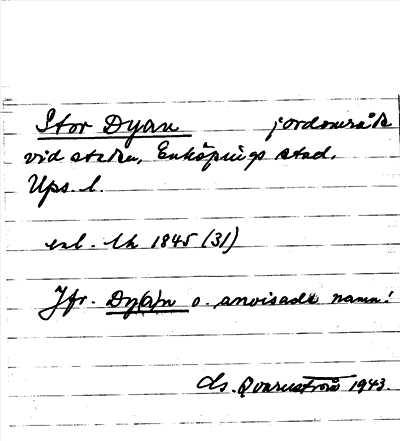 Stor Dyan jordområde
vid staden, Enköpings stad.
Ups. l.
enl. lk 1845 (31)
Jfr. Dy(a)n o. anvisade namn!
Ds. Qvarnström 1943.